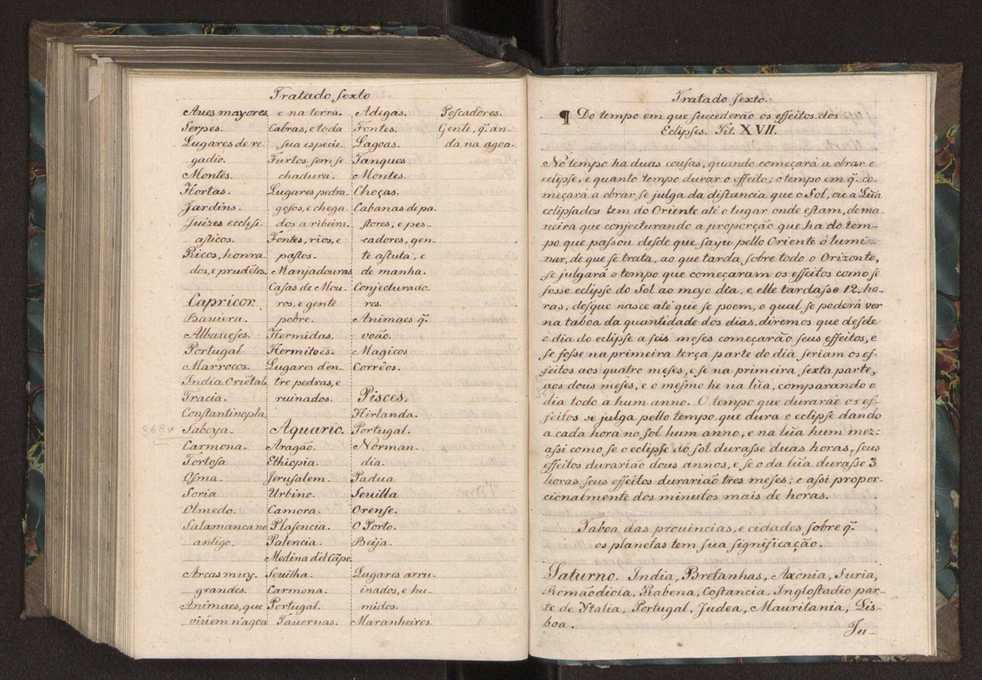 Tratado sexto
Aues mayores
Serpes.
Lugares de re-
gadio.
Montes.
Hortas.
Jardins.
Juizes ecclesi-
asticos.
Ricos, honra-
dos, e prudẽtes
Capricor.
Bauiera.
Albaneses.
Portugal
Marrocos.
India Oriẽtal.
Tracia.
Constantinopla
Saboya.
Carmona.
Tortosa
Osma.
Soria
Olmedo.
Salamanca no
antigo.
Arcas muy
grandes.
Animaes, que
viuem n'agoa
e na terra.
Cabras, e toda
sua especie.
Furtos sem fe-
chadura.
Lugares pedra-
gosos, e chega-
dos a ribeiras.
Fontes, rios, e
pastos.
Manjadouras
Casas de Mou-
ros, e gente
pobre.
Hermidas.
Hermitoẽs.
Lugares den-
tre pedras, e
ruinados.
Aquario.
Aragão.
Ethiopia
Jerusalem.
Urbino.
Camora.
Plasencia.
Palencia.
Medina del Cãpo.
Seuilha.
Carmona.
Portugal.
Tauernas.
Adigas.
Fontes.
Lagoas.
Tanques
Montes.
Choças.
Cabanas de pa-
stores, e pes-
cadores, gen-
te astuta, e
de manha.
Conjecturado-
res.
Animaes q̃
voão.
Magicos
Corrêos.
Pisces.
Hirlanda.
Portugal.
Norman-
dia.
Padua
Seuilla
Orense.
O Porto.
Beija.
Lugares arru-
inados, e hu-
midos.
Maranheiros
Pescadores.
Gente, q̃ an-
da na agoa.
Tratado sexto.
¶ Do tempo em que succederão os effeitos dos
Eclipses. Tit. XVII.
No tempo ha duas cousas, quando começará a obrar o
eclipse, e quanto tempo durar o effeito; o tempo em q̃ co-
meçará a obrar se julga da distancia que o Sol, ou a Lũa
eclipsados tem do Oriente até o lugar onde estam, de ma-
neira que conjecturando a proporção que ha do tem-
po que passou desde que sayu pello Oriente o lumi-
nar, de que se trata, ao que tarda sobre todo o Orizonte,
se julgará o tempo que começaram os effeitos como se
fosse eclipse do Sol ao meyo dia, e elle tardasse 12. ho-
ras, desque nasce até que se poem, o qual se poderá ver
na taboa da quantidade dos dias, diremos que desde
o dia do eclipse a seis meses começarão seus effeitos, e
se fosse na primeira terça parte do dia seriam os ef-
feitos aos quatro meses, e se na primeira sexta parte,
aos dous meses, e o mesmo he na lũa, comparando o
dia todo a hum anno. O tempo que durarão os ef-
feitos se julga pello tempo, que dura o eclipse dando
a cada hora no sol hum anno, e na lũa hum mez:
assi como se o eclipse do sol durasse duas horas, seus
effeitos durarião dous annos, e se o da lũa durasse 3
horas, seus effeitos durarião tres meses; e assi propor-
cionalmente dos minutos mais de horas.
Taboa das prouincias, e cidades, sobre q̃
os planetas tem sua significação.
Saturno. India, Bretanhas, Axonia, Suria,
Romãodiola, Rabena, Costancia, Inglostadio par-
te de Ytalia, Portugal, Judea, Mauritania, Lis-
boa.
Ju-